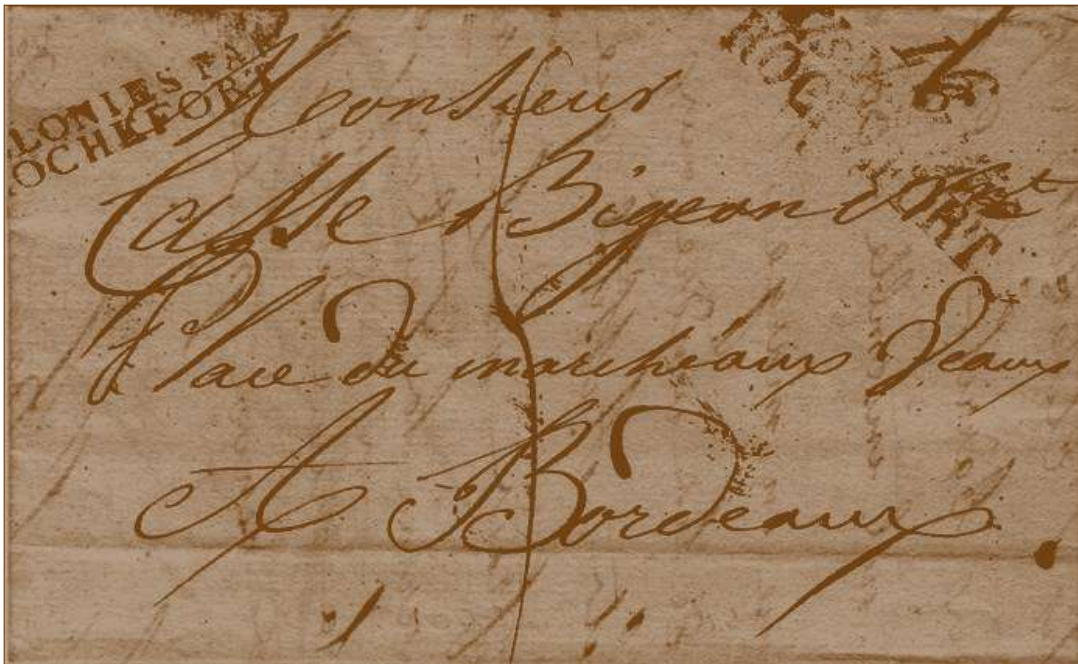 LONIES PAR
OCHEFORT
Monsieur
Casse Bigeon
Place du marché aux Veaux
A Bordeaux